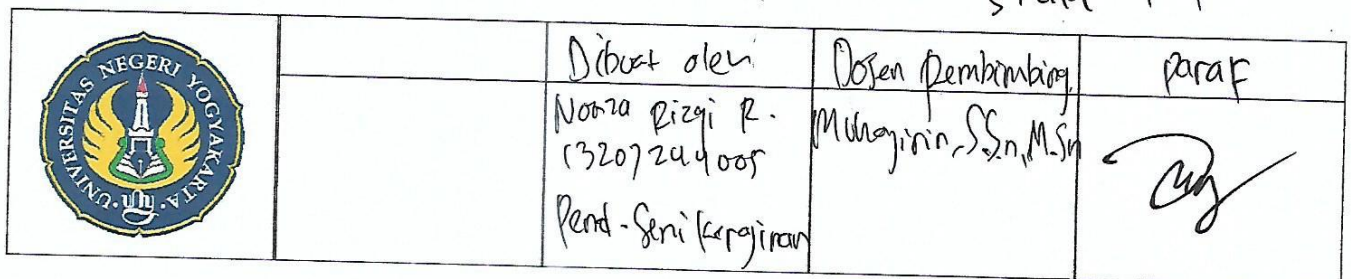 UNIVERSITAS NEGERI YOGYAKARTA
Dibuat oleh
Dosen Pembimbing
paraf
Rizqi R.
13207244005
Pend. Seni Kerajinan
Muhajirin, S.Sn, M.Sn